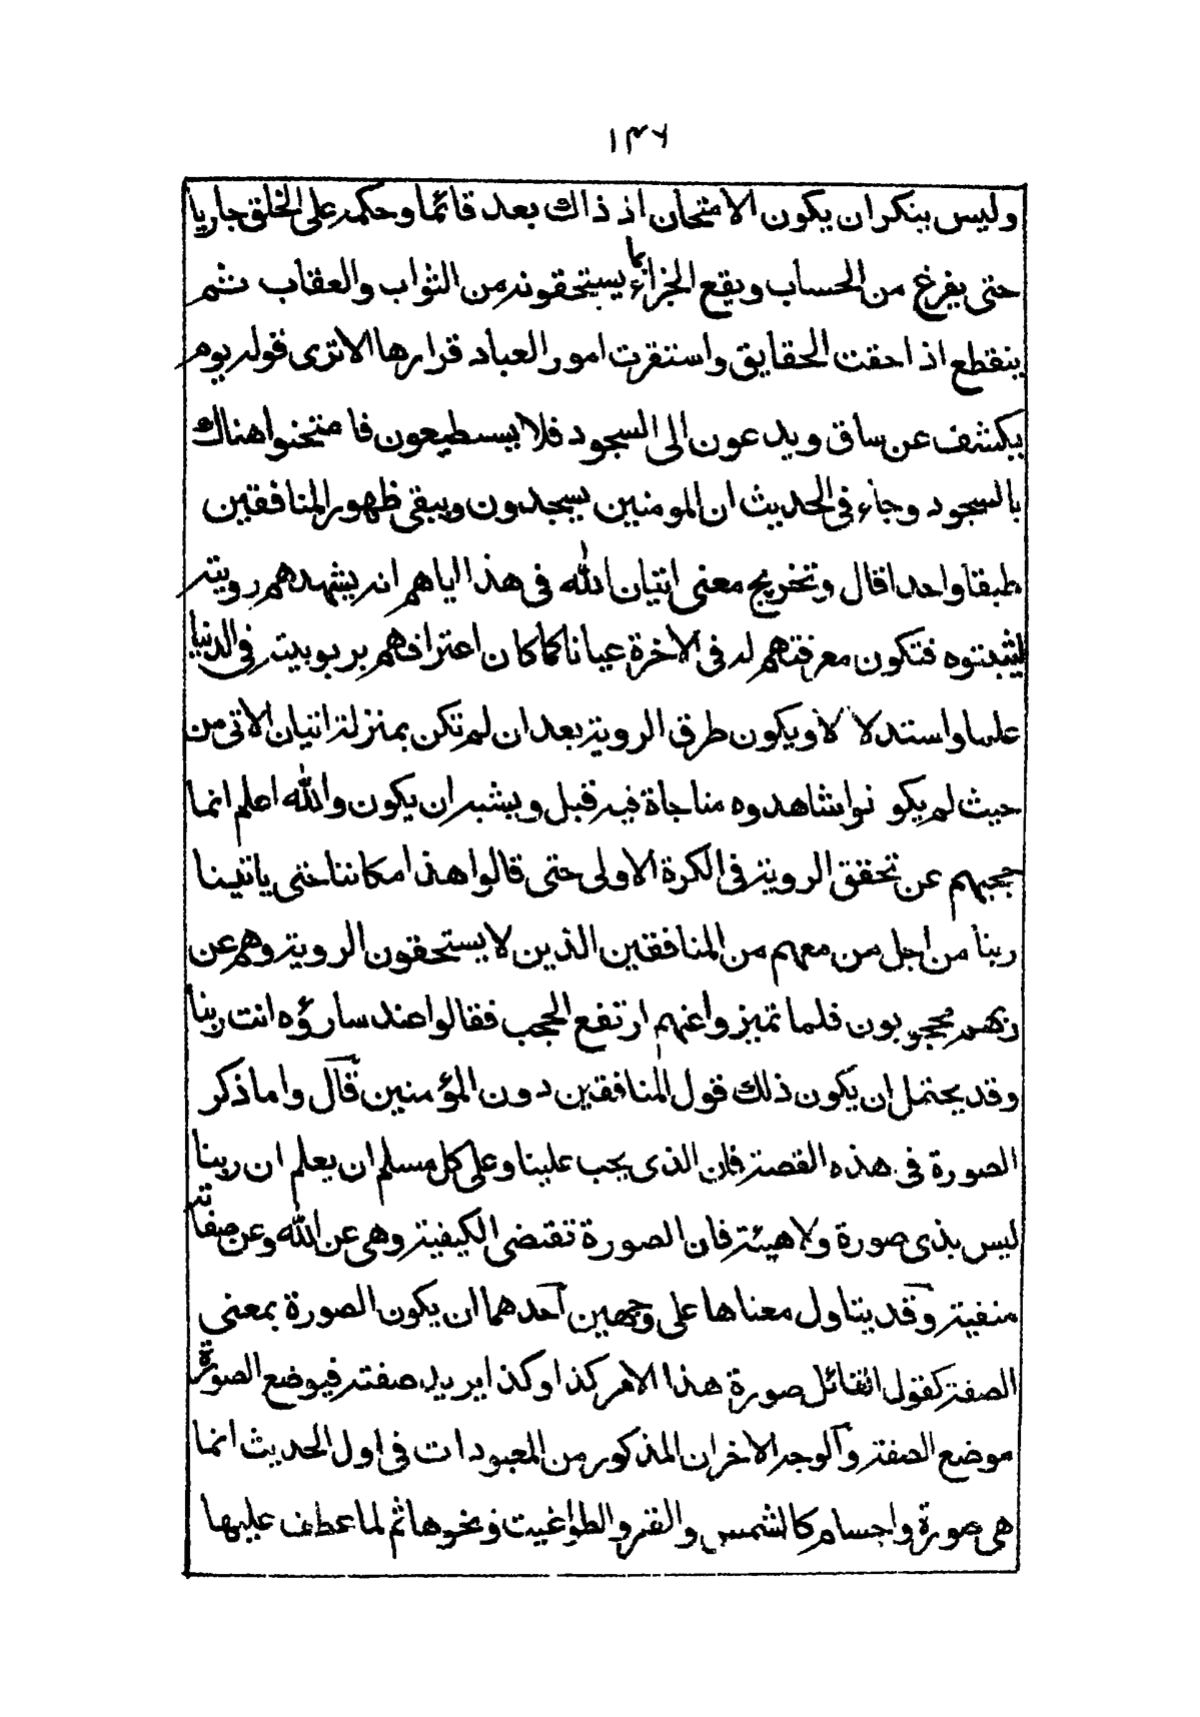 ١٣٦
وليس بنكر ان يكون الامتحان اذ ذاك بعد قائما وحكمه على الخلق جاريا
حتى يفرغ من الحساب ويقع الجزاء بما يستحقونه من الثواب والعقاب ثم
ينقطع اذا حقت الحقايق واستقرت امور العباد قرارها الا ترى قوله يوم
يكشف عن ساق ويدعون الى السجود فلا يستطيعون فامتحنوا هناك
بالسجود وجاء في الحديث ان المومنين يسجدون ويبقى ظهور المنافقين
طبقا واحدا قال وتخريج معنى اتيان الله في هذا اياهم انه يشهدهم رويته
ليثبتوه فتكون معرفتهم له في الاخرة عيانا كما كان اعترافهم بربوبيته في الدنيا
علما واستدلالا ويكون طرق الروية بعد ان لم تكن بمنزلة اتيان الاتى من
حيث لم يكونوا شاهدوه مناجاة فيه قبل ويشبه ان يكون والله اعلم انما
حجبهم عن تحقق الروية في الكرة الاولى حتى قالوا هذا مكاننا حتى ياتينا
ربنا من اجل من معهم من المنافقين الذين لا يستحقون الروية وهم عن
ربهم محجوبون فلما تميزوا عنهم ارتفع الحجب فقالوا عند ساروه انت ربنا
وقد يحتمل ان يكون ذلك قول المنافقين دون المؤمنين قال واما ذكر
الصورة في هذه القصة فان الذى يجب علينا وعلى كل مسلم ان يعلم ان ربنا
ليس بذى صورة ولا هيئة فان الصورة تقتضى الكيفية وهى عن الله وعن صفاته
منفية وقد يتاول معناها على وجهين احدهما ان يكون الصورة بمعنى
الصفة كقول القائل صورة هذا الامر كذا وكذا يريد صفته فيوضع الصورة
موضع الصفة والوجه الاخر ان المذكور من المعبودات في اول الحديث انما
هى صورة واجسام كالشمس والقمر والطواغيت ونحوها ثم لما عطف عليها